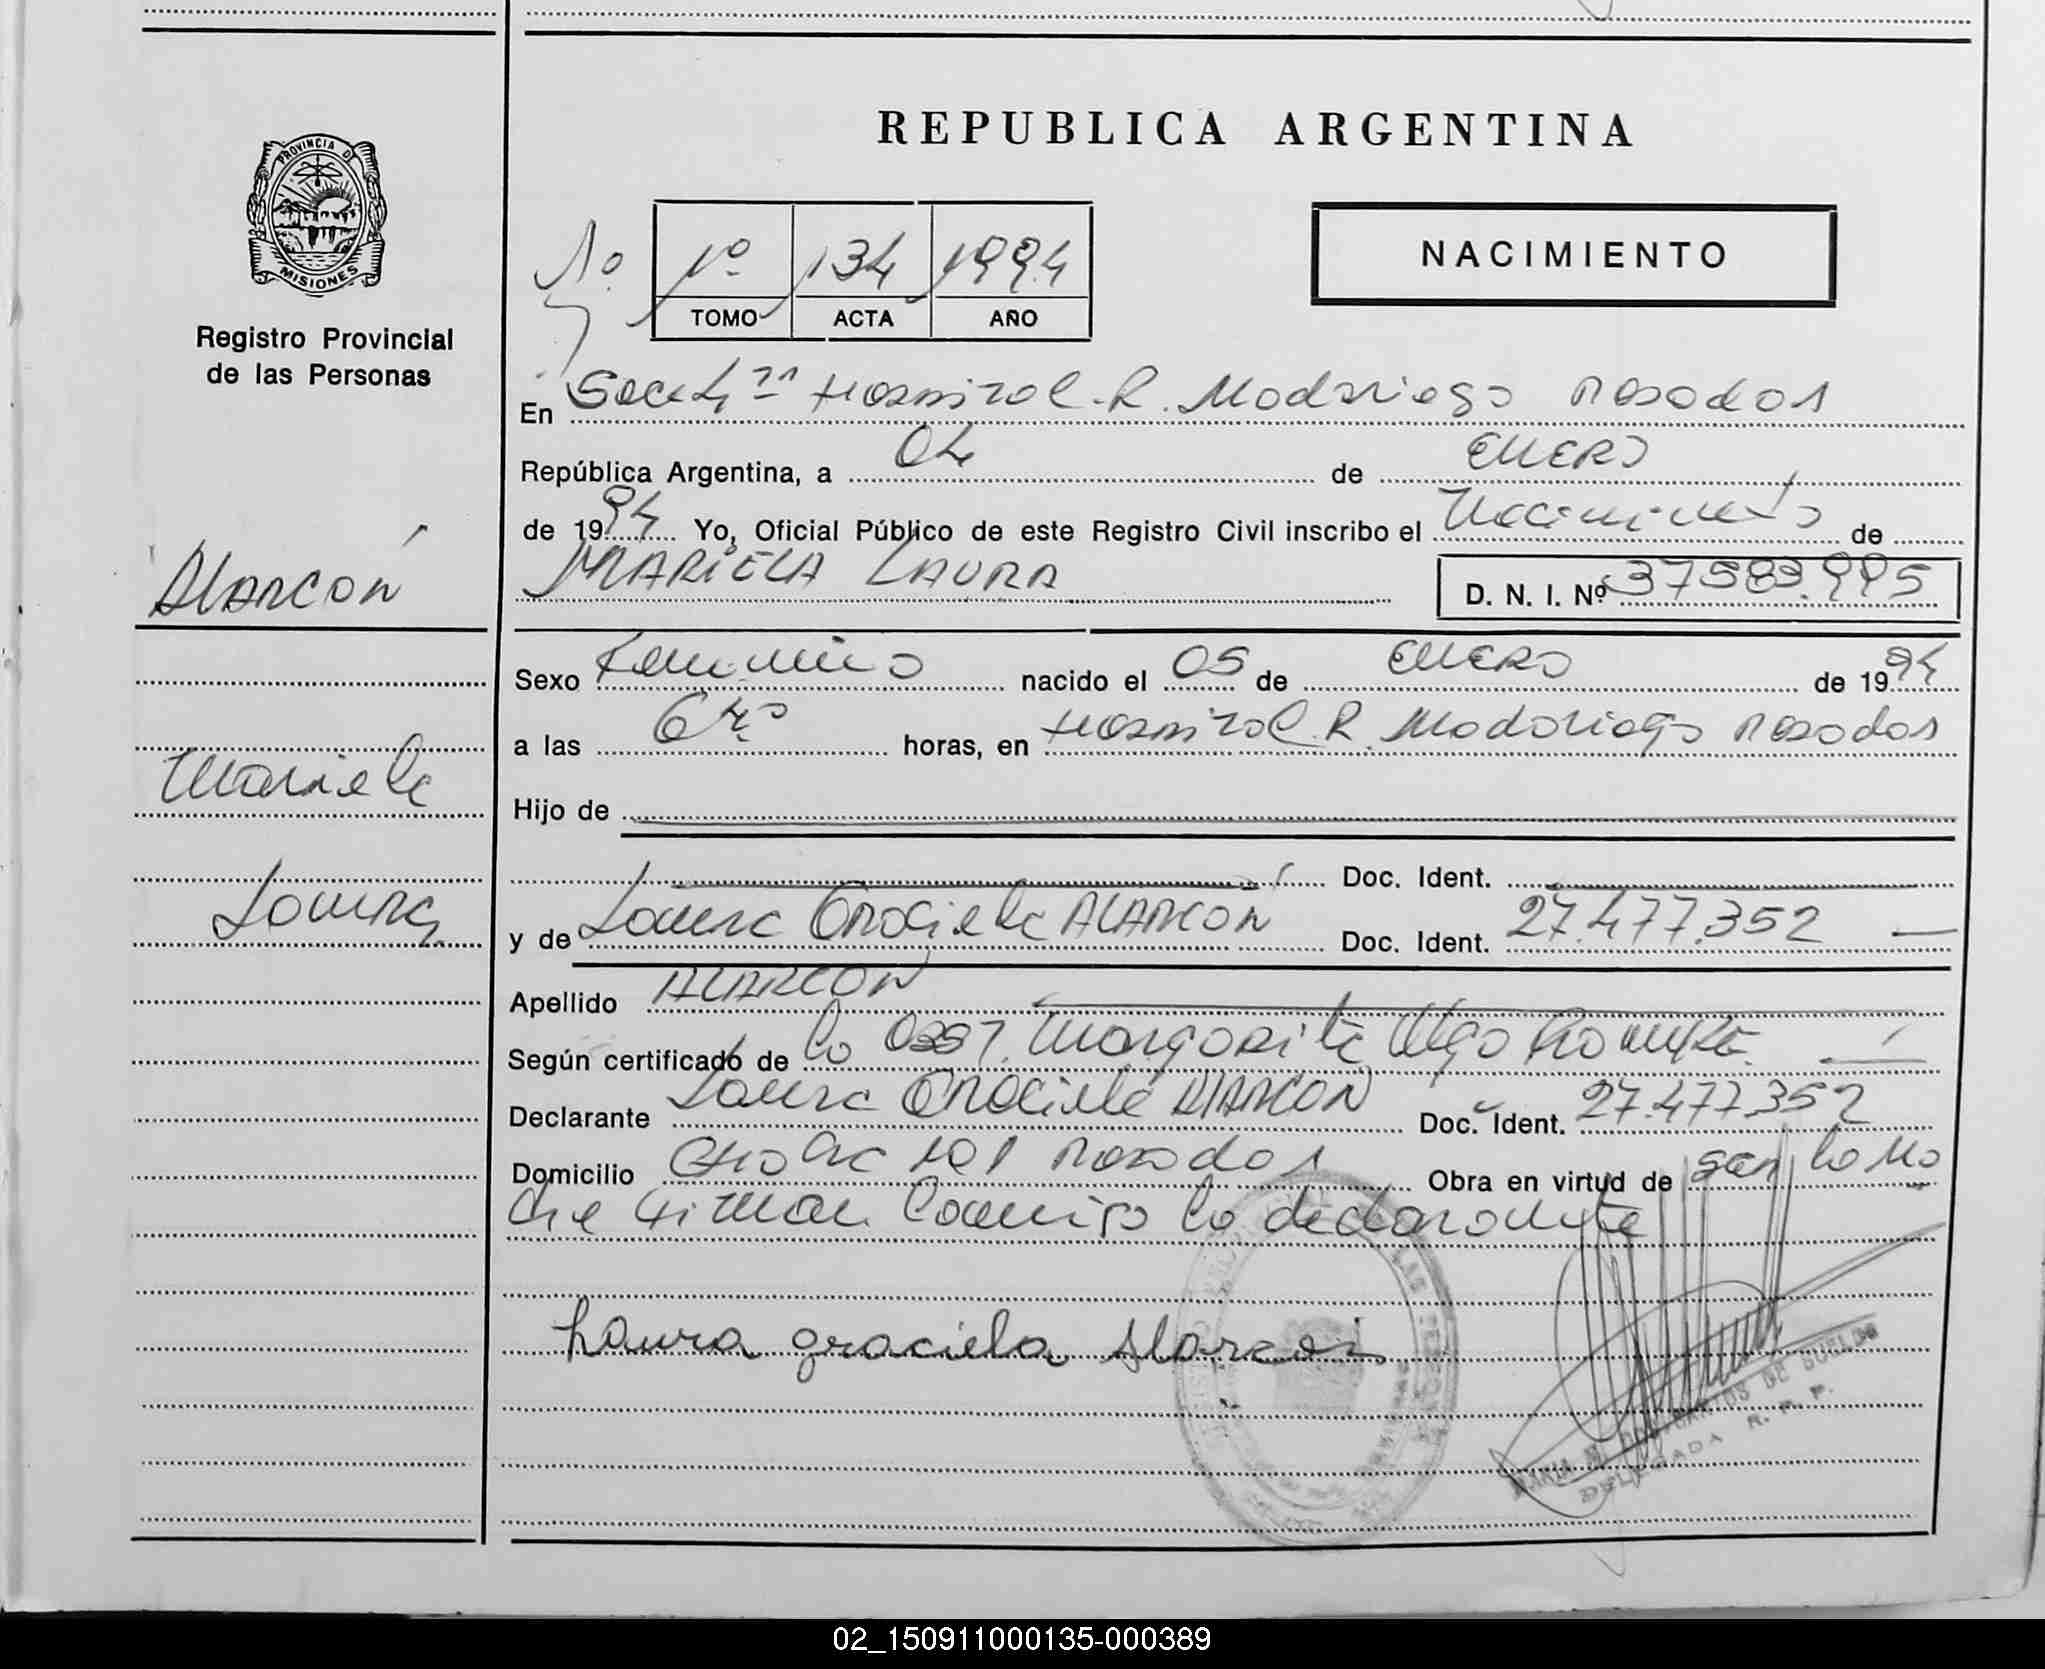 REPUBLICA ARGENTINA
PROVINCIA DE
MISIONES
Registro Provincial
de las Personas
Nº 1º 134 1994
TOMO ACTA AÑO
NACIMIENTO
En Secc 4ª Hospital R. Madariaga Posadas
República Argentina, a 04 de ENERO
de 1994 Yo, Oficial Público de este Registro Civil inscribo el Nacimiento de
MARIELA LAURA D. N. I. Nº 37583.995
Alarcón
Sexo Femenino nacido el 05 de ENERO de 1994
a las 6 hs horas, en Hospital R. Madariaga Posadas
Mariela
Hijo de
Doc. Ident.
Laura
y de Laura Graciela ALARCON Doc. Ident. 27.477.352
Apellido ALARCON
Según certificado de la Obst. Margarita Olga
Declarante Laura Graciela ALARCON Doc. Ident. 27.477.352
Domicilio Posadas Obra en virtud de ser la Ma
dre Firman conmigo la declarante
Laura graciela Alarcon
MARIA DOS SANTOS DE SUELDO
DELEGADA R. P. P.
02_150911000135-000389